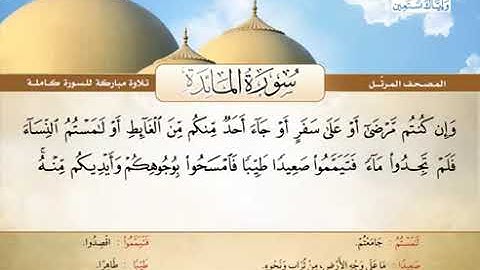 وَإِيَّاكَ نَسْتَعِين
المصحف المرتّل
سُورَةُ المَائِدَة
تلاوة مباركة للسورة كاملة
وَإِن كُنتُم مَّرْضَىٰٓ أَوْ عَلَىٰ سَفَرٍ أَوْ جَآءَ أَحَدٌ مِّنكُم مِّنَ ٱلْغَآئِطِ أَوْ لَٰمَسْتُمُ ٱلنِّسَآءَ
فَلَمْ تَجِدُوا۟ مَآءً فَتَيَمَّمُوا۟ صَعِيدًا طَيِّبًا فَٱمْسَحُوا۟ بِوُجُوهِكُمْ وَأَيْدِيكُم مِّنْهُ ۚ
لَٰمَسْتُمُ : جَامَعْتُمْ. فَتَيَمَّمُوا۟ : اقْصِدُوا.
صَعِيدًا : مَا عَلَى وَجْهِ الأَرْضِ، مِنْ تُرَابٍ وَنَحْوِهِ. طَيِّبًا : طَاهِرًا.